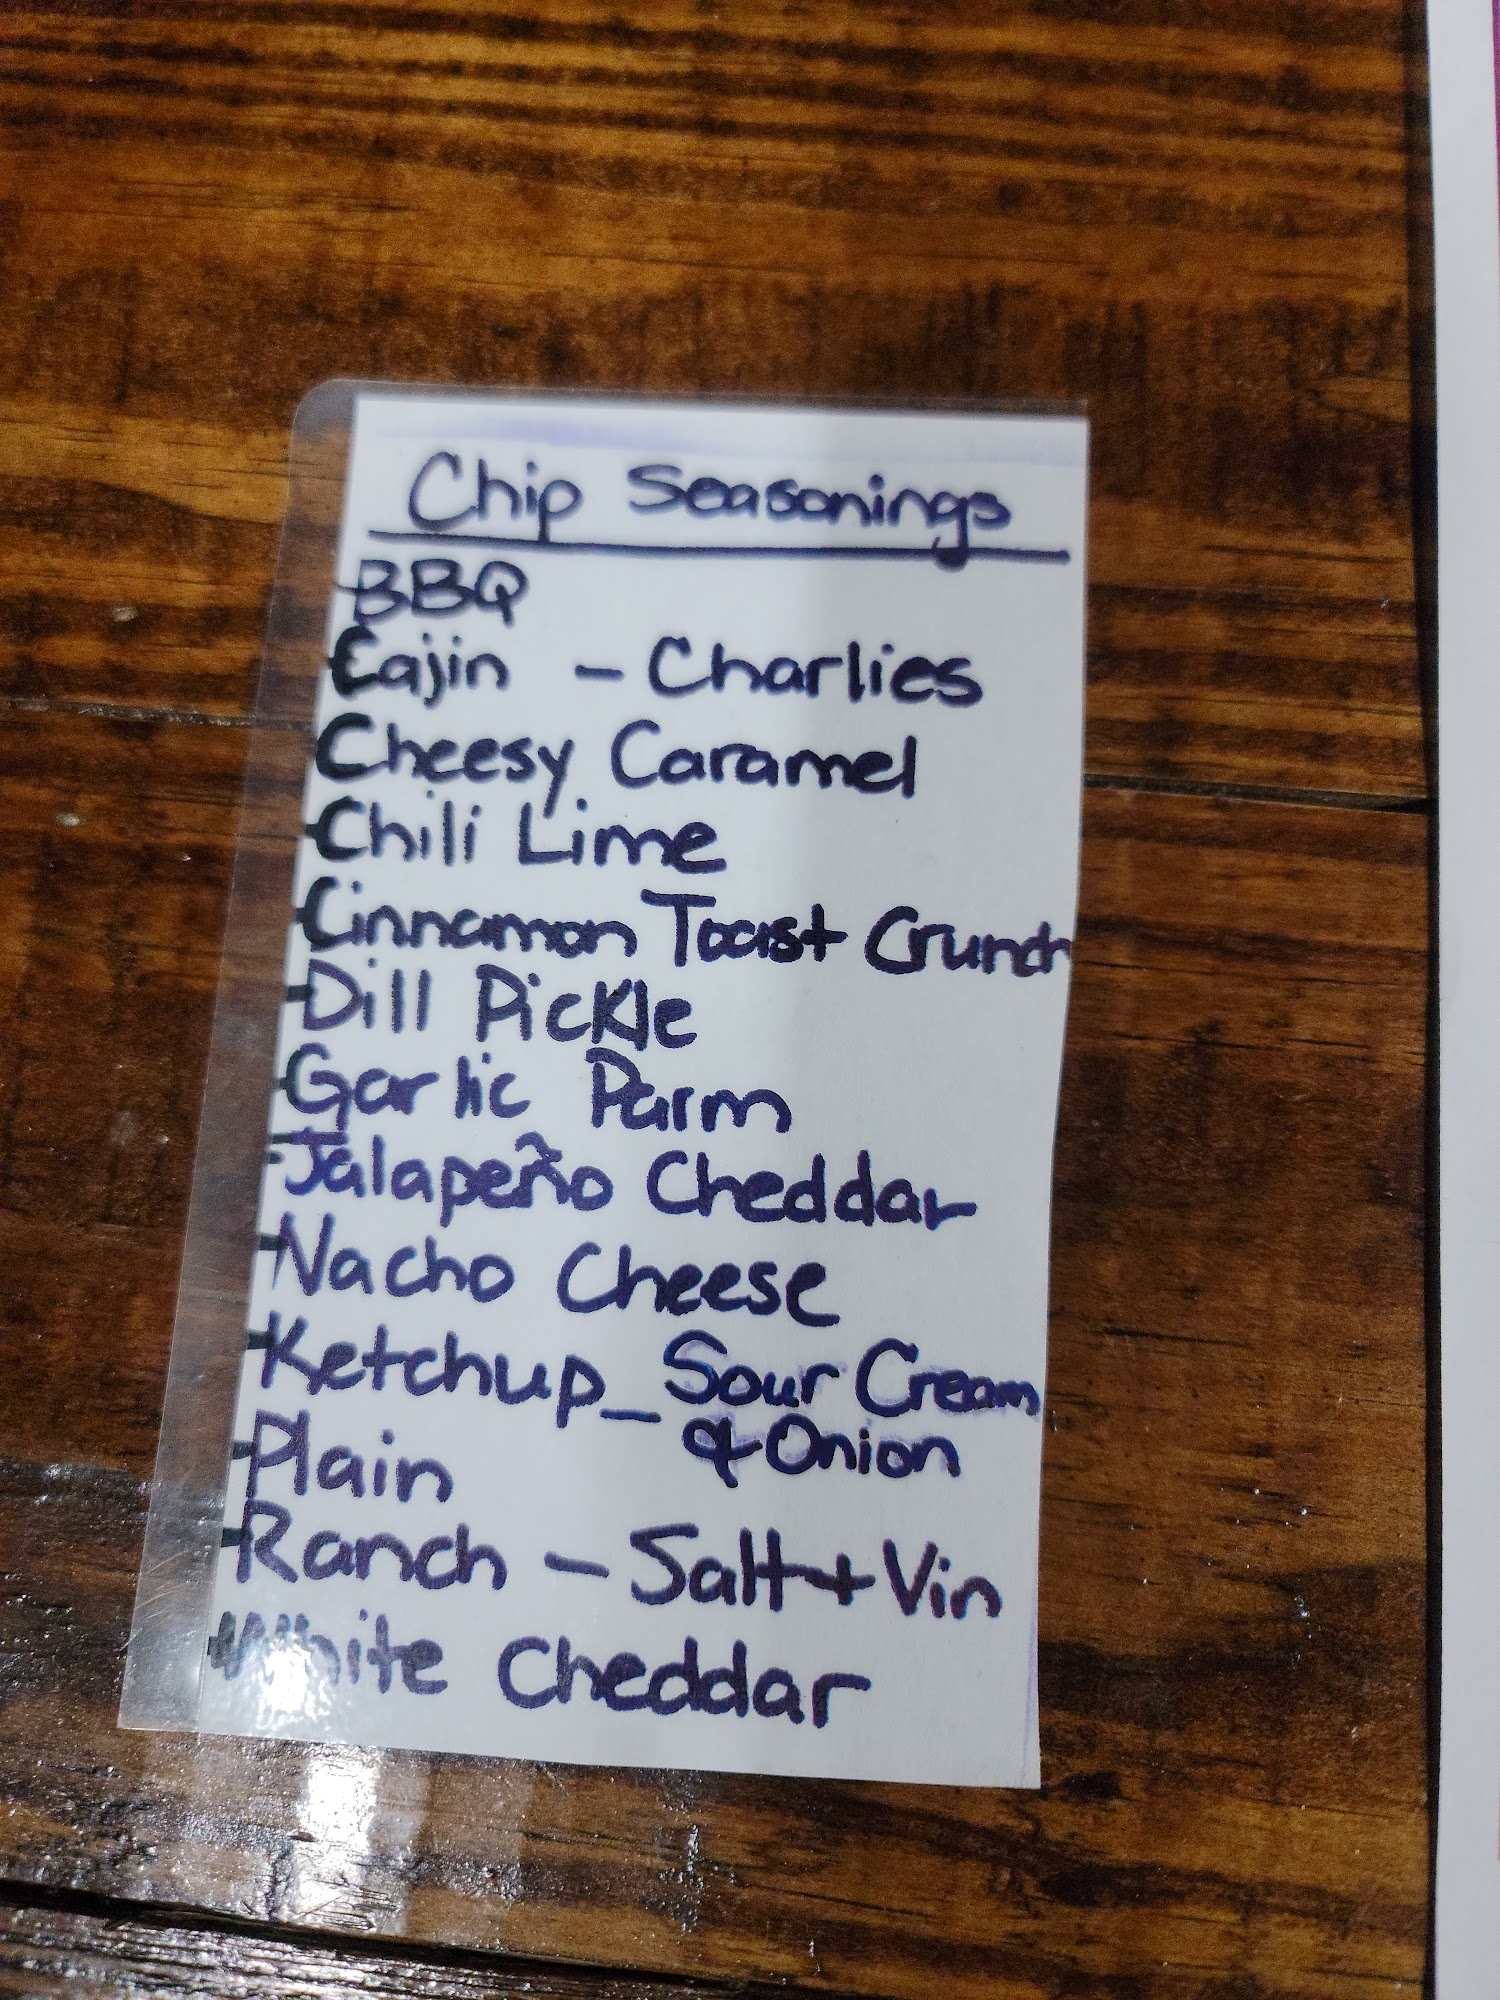 Chip Seasonings
-BBQ
-Cajin - Charlies
-Cheesy Caramel
-Chili Lime
-Cinnamon Toast Crunch
-Dill Pickle
-Garlic Parm
-Jalapeño Cheddar
-Nacho Cheese
-Ketchup - Sour Cream
& Onion
-Plain
-Ranch - Salt + Vin
-White Cheddar